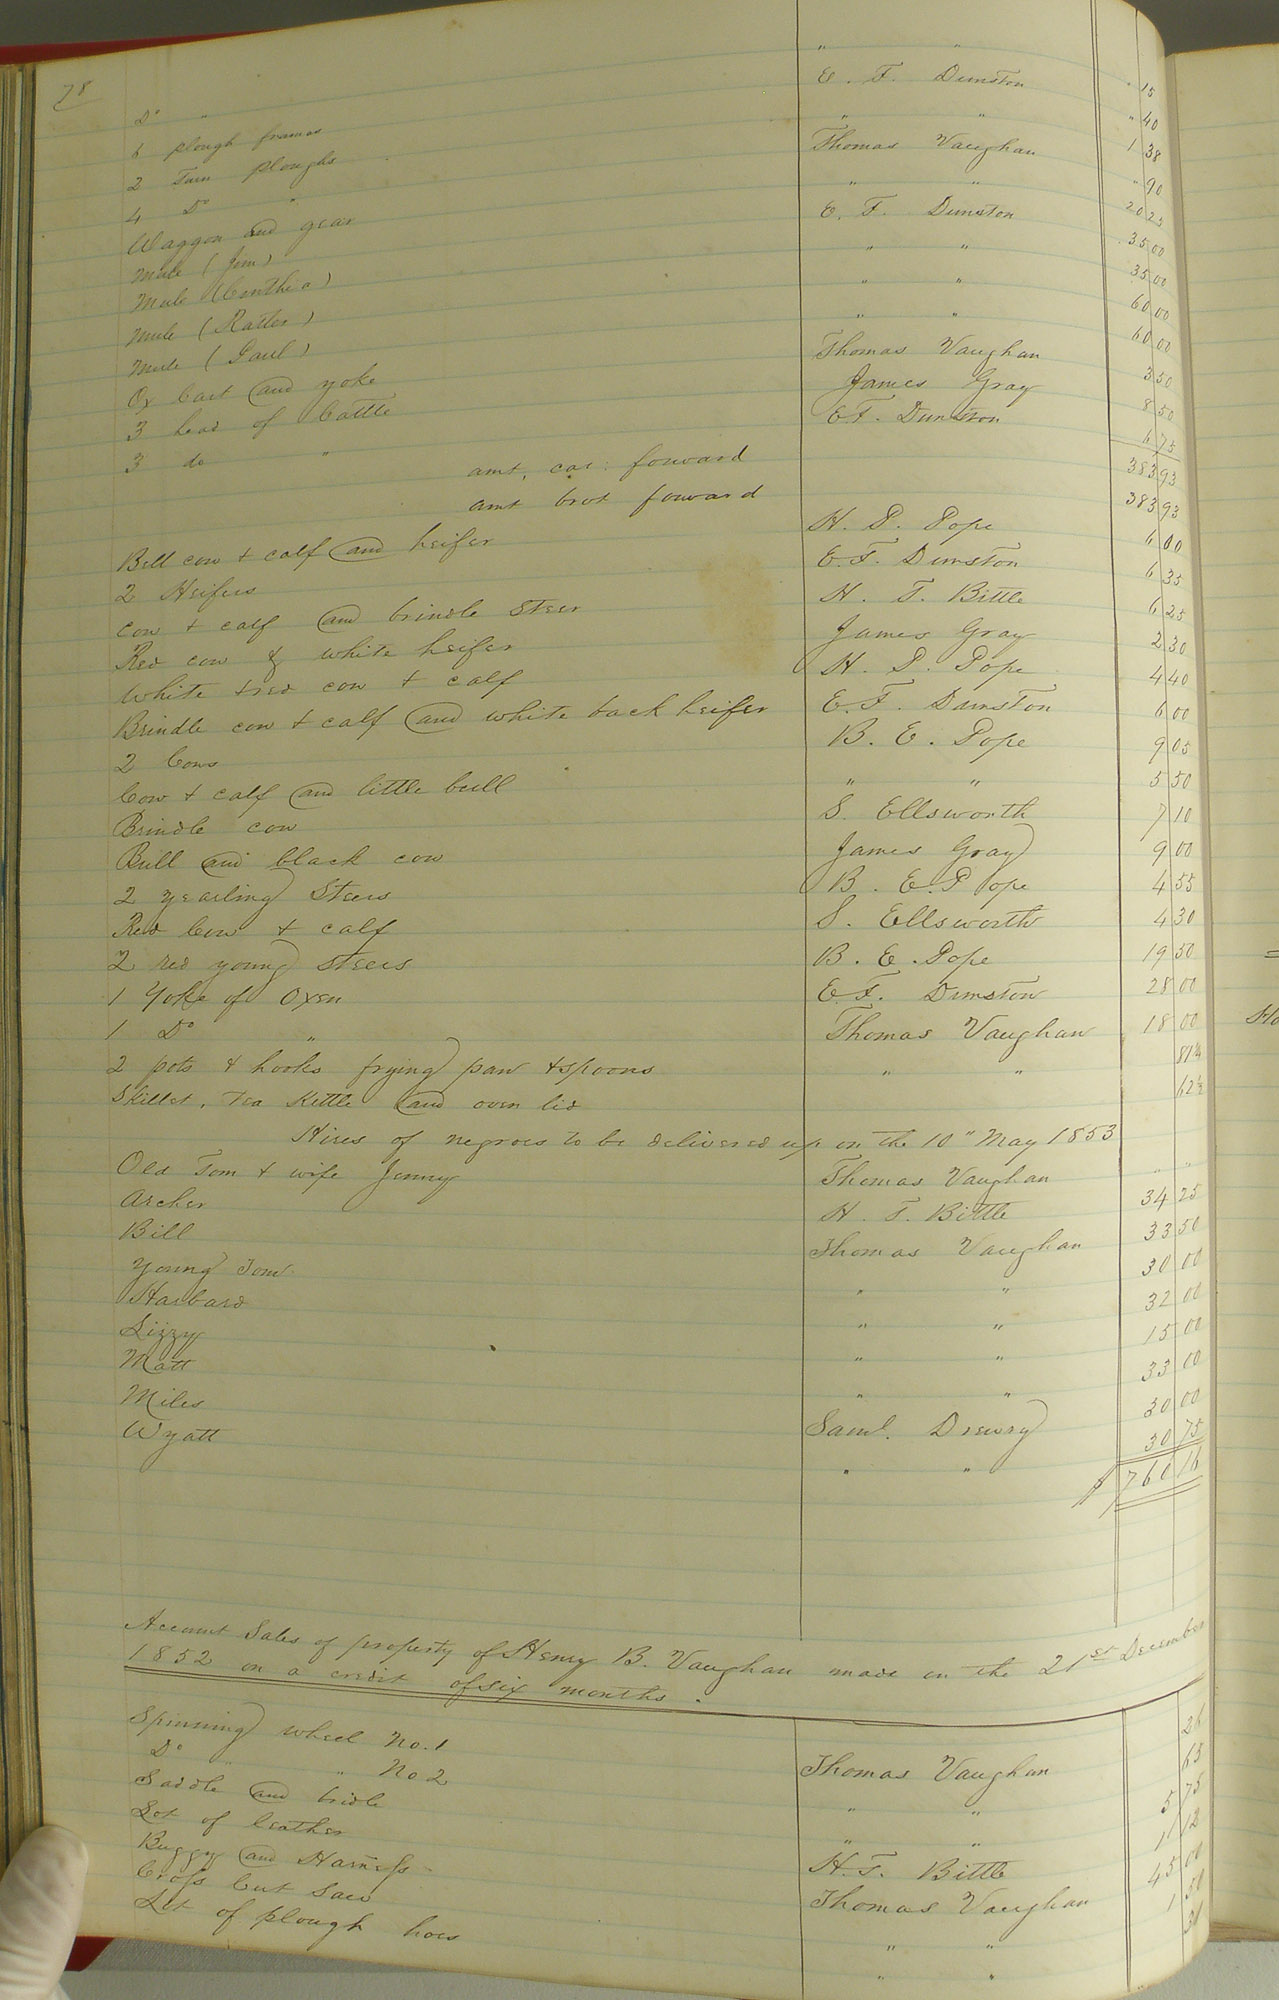 78
" "
D° " E. F. Dunston " 15
6 plough frames " " " 40
2 Turn ploughs Thomas Vaughan 1 38
4 D° " " " " 90
Waggon and gear E. F. Dunston 20 25
Mule (Jim) " " 35 00
Mule (Cinthia) " " 35 00
Mule (Ratler) " " 60 00
Mule (Paul) Thomas Vaughan 60 00
Ox Cart and yoke James Gray 3 50
3 head of Cattle E F. Dunston 8 50
3 do " 6 75
amt, car: forward 383 93
amt brot forward 383 93
Bell cow & calf and heifer H. P. Pope 6 00
2 Heifers E. F. Dunston 6 35
Cow & calf and brindle Steer H. T. Bittle 6 25
Red cow & white heifer James Gray 2 30
White & red cow & calf H. P. Pope 4 40
Brindle cow & calf and white back heifer E. F. Dunston 6 00
2 Cows B. E. Pope 9 05
Cow & calf and little bull " " 5 50
Brindle cow S. Ellsworth 7 10
Bull and black cow James Gray 9 00
2 yearling Steers B. E. Pope 4 55
Red Cow & calf S. Ellsworth 4 30
2 red young steers B. E. Pope 19 50
1 Yoke of Oxen E. F. Dunston 28 00
1 D° " Thomas Vaughan 18 00
2 pots & hooks frying pan & spoons " " 81¼
Skillet, Tea Kettle and oven lid 62½
Hires of negroes to be delivered up on the 10" May 1853
Old Tom & wife Jenny Thomas Vaughan " "
Archer H. T. Bittle 34 25
Bill Thomas Vaughan 33 50
Young Tom " " 30 00
Harbard " " 32 00
Lizzy " " 15 00
Matt " " 33 00
Miles Saml. Drewry 30 00
Wyatt " " 30 75
$ 760 16
Account Sales of property of Henry B. Vaughan made on the 21st December
1852 on a credit of six months.
Spinning wheel No. 1 Thomas Vaughan 26
D° " No 2 " " 65
Saddle and bridle " " 5 75
Lot of leather H. T. Bittle 1 12
Buggy and Harness Thomas Vaughan 45 00
Cross Cut Saw " " 1 50
Lot of plough hoes " "